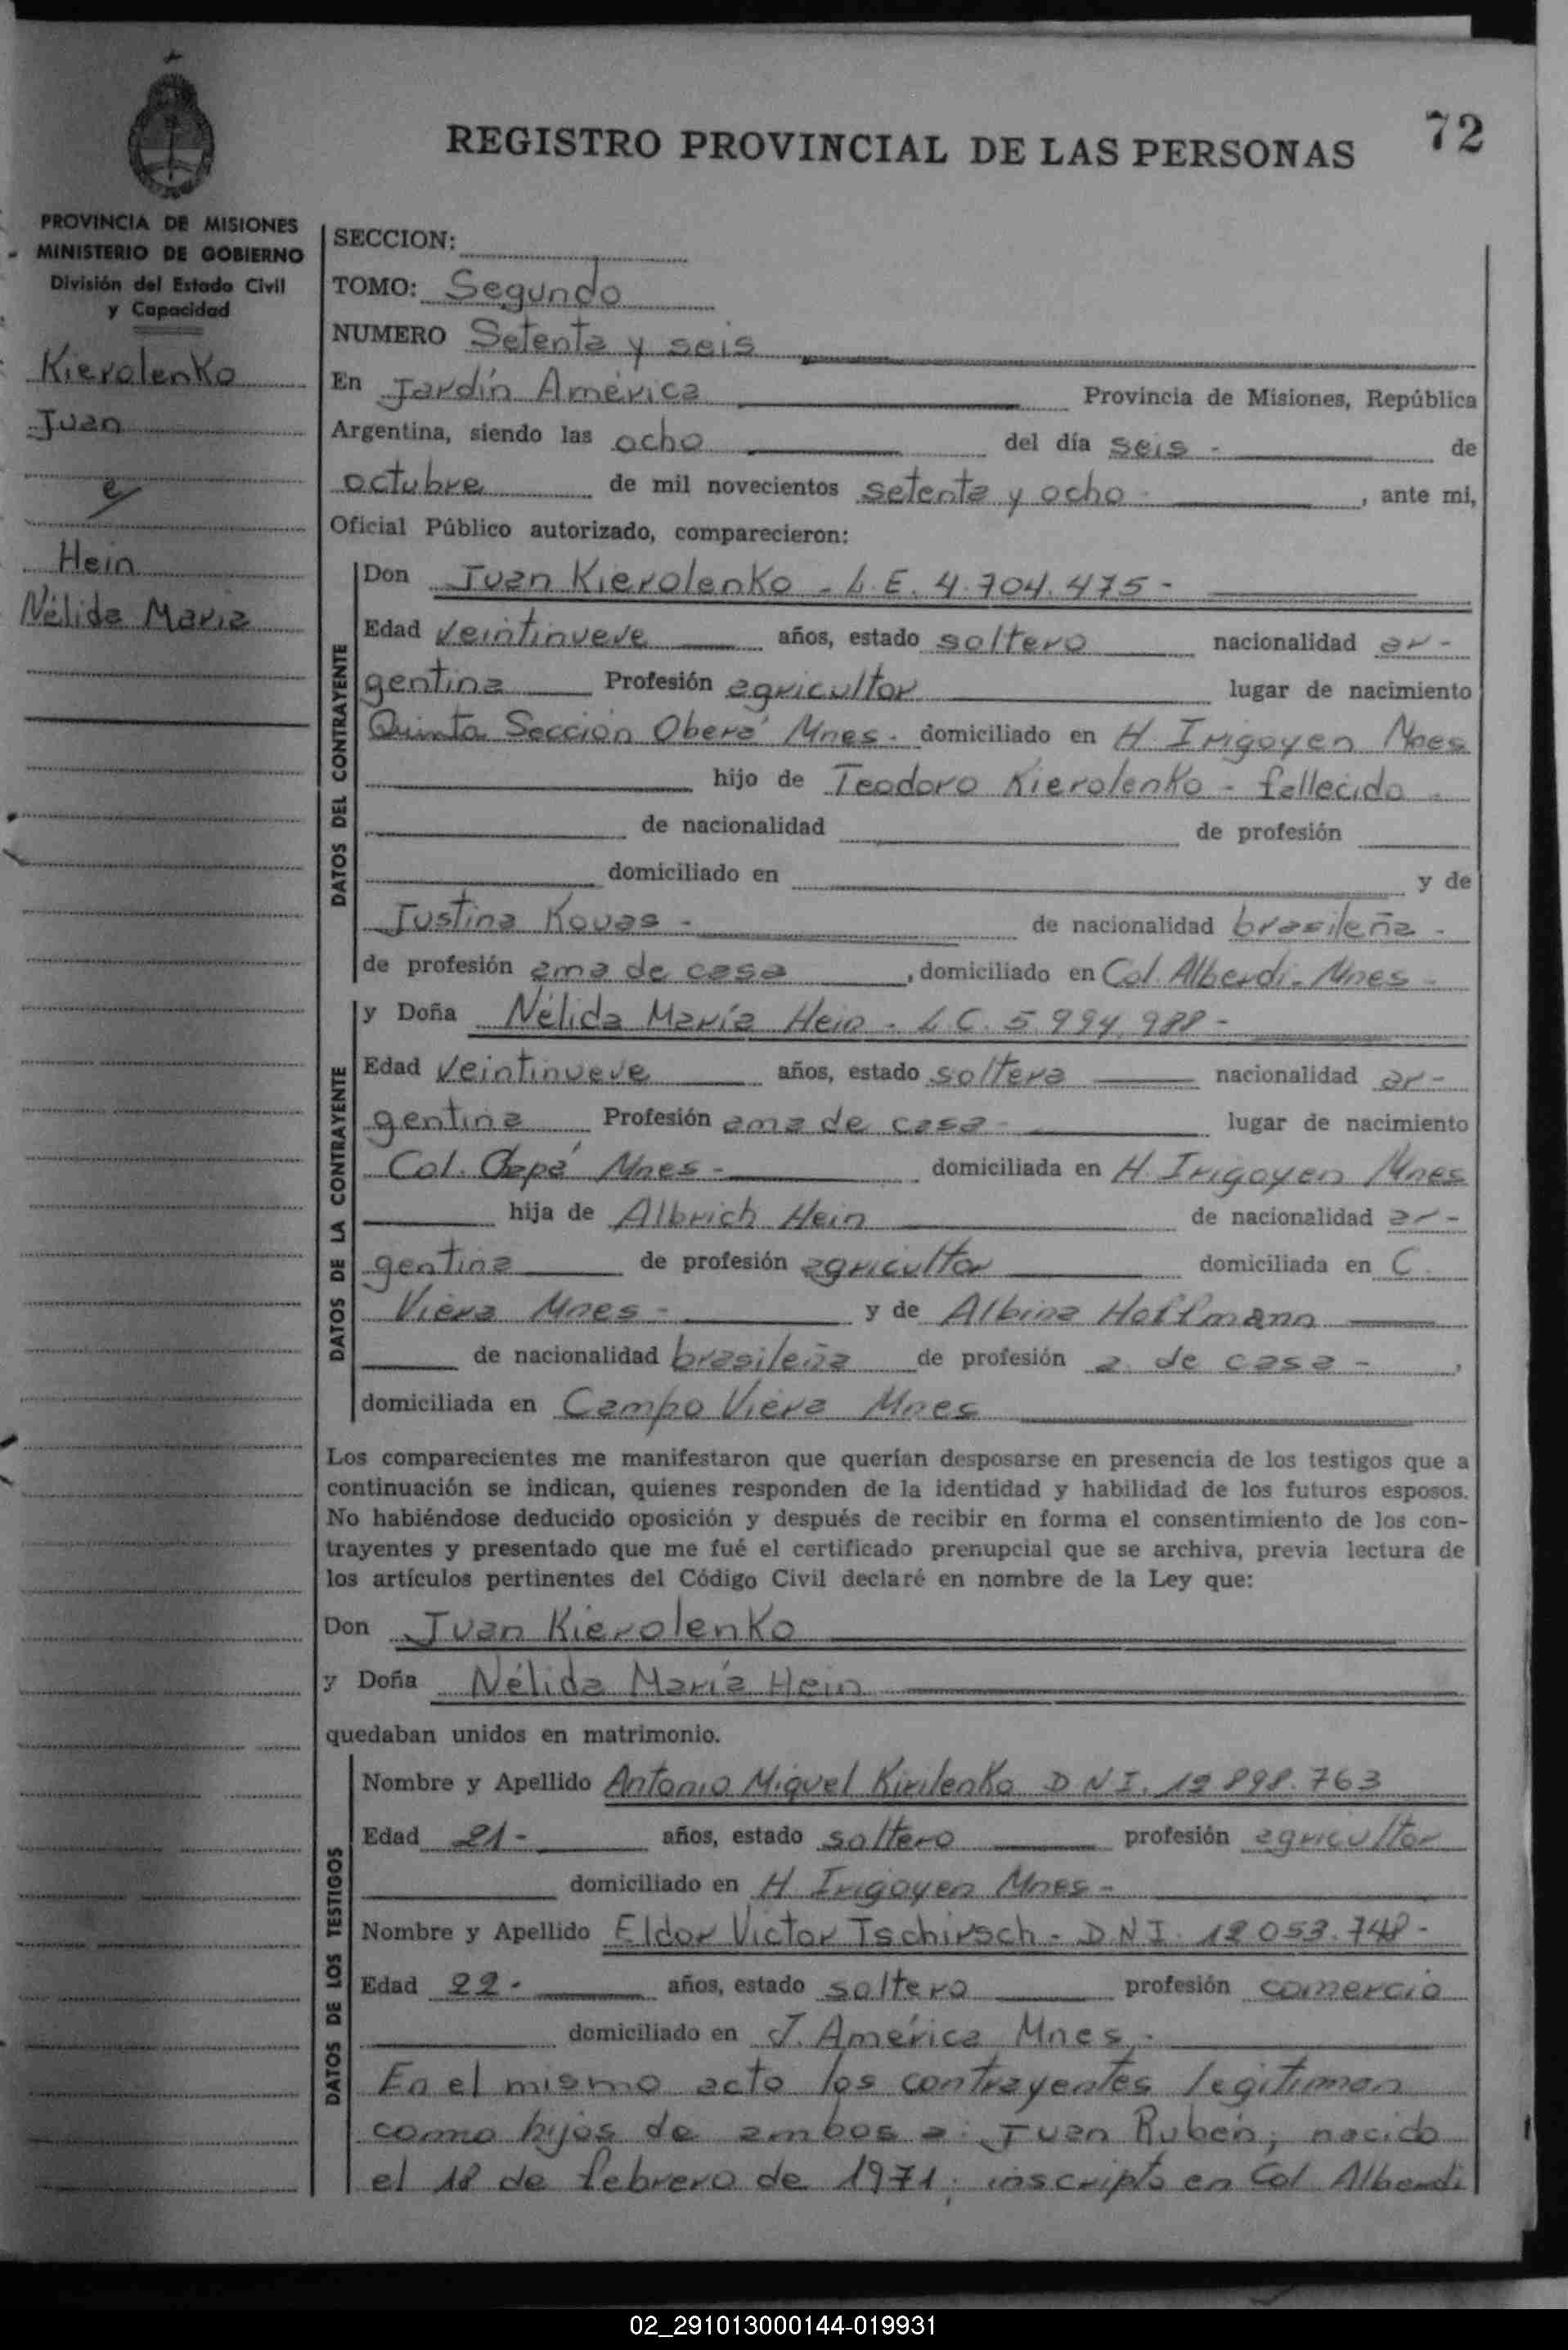 72
REGISTRO PROVINCIAL DE LAS PERSONAS
PROVINCIA DE MISIONES
MINISTERIO DE GOBIERNO
División del Estado Civil
y Capacidad
Kierolenko
Juan
y
Hein
Nélida María
SECCION:
TOMO: Segundo
NUMERO Setenta y seis
En Jardín América Provincia de Misiones, República
Argentina, siendo las ocho del día seis - de
octubre de mil novecientos setenta y ocho - , ante mi,
Oficial Público autorizado, comparecieron:
DATOS DEL CONTRAYENTE
Don Juan Kierolenko - L.E. 4.704.475 -
Edad veintinueve años, estado soltero nacionalidad ar-
gentina Profesión agricultor lugar de nacimiento
Quinta Sección Oberá Mnes - domiciliado en H. Irigoyen Mnes
hijo de Teodoro Kierolenko - fallecido -
de nacionalidad de profesión
domiciliado en y de
Justina Kovas - de nacionalidad brasileña -
de profesión ama de casa , domiciliado en Col. Alberdi - Mnes -
DATOS DE LA CONTRAYENTE
y Doña Nélida María Hein - L.C. 5.994.988 -
Edad veintinueve años, estado soltera nacionalidad ar-
gentina Profesión ama de casa - lugar de nacimiento
Col. Mnes - domiciliada en H. Irigoyen Mnes
hija de Albrich Hein de nacionalidad ar-
gentina de profesión agricultor domiciliada en C.
Viera Mnes - y de Albina Hoffmann
de nacionalidad brasileña de profesión a. de casa - ,
domiciliada en Campo Viera Mnes
Los comparecientes me manifestaron que querían desposarse en presencia de los testigos que a
continuación se indican, quienes responden de la identidad y habilidad de los futuros esposos.
No habiéndose deducido oposición y después de recibir en forma el consentimiento de los con-
trayentes y presentado que me fué el certificado prenupcial que se archiva, previa lectura de
los artículos pertinentes del Código Civil declaré en nombre de la Ley que:
Don Juan Kierolenko
y Doña Nélida María Hein
quedaban unidos en matrimonio.
DATOS DE LOS TESTIGOS
Nombre y Apellido Antonio Miguel Kirilenko D.N.I. 12.898.763
Edad 21 - años, estado soltero profesión agricultor
domiciliado en H. Irigoyen Mnes -
Nombre y Apellido Eldor Victor Tschirsch - D.N.I. 12.053.748 -
Edad 22 - años, estado soltero profesión comercio
domiciliado en J. América Mnes. -
En el mismo acto los contrayentes legitiman
como hijos de ambos a: Juan Rubén, nacido
el 18 de febrero de 1971; inscripto en Col. Alberdi
02_291013000144-019931